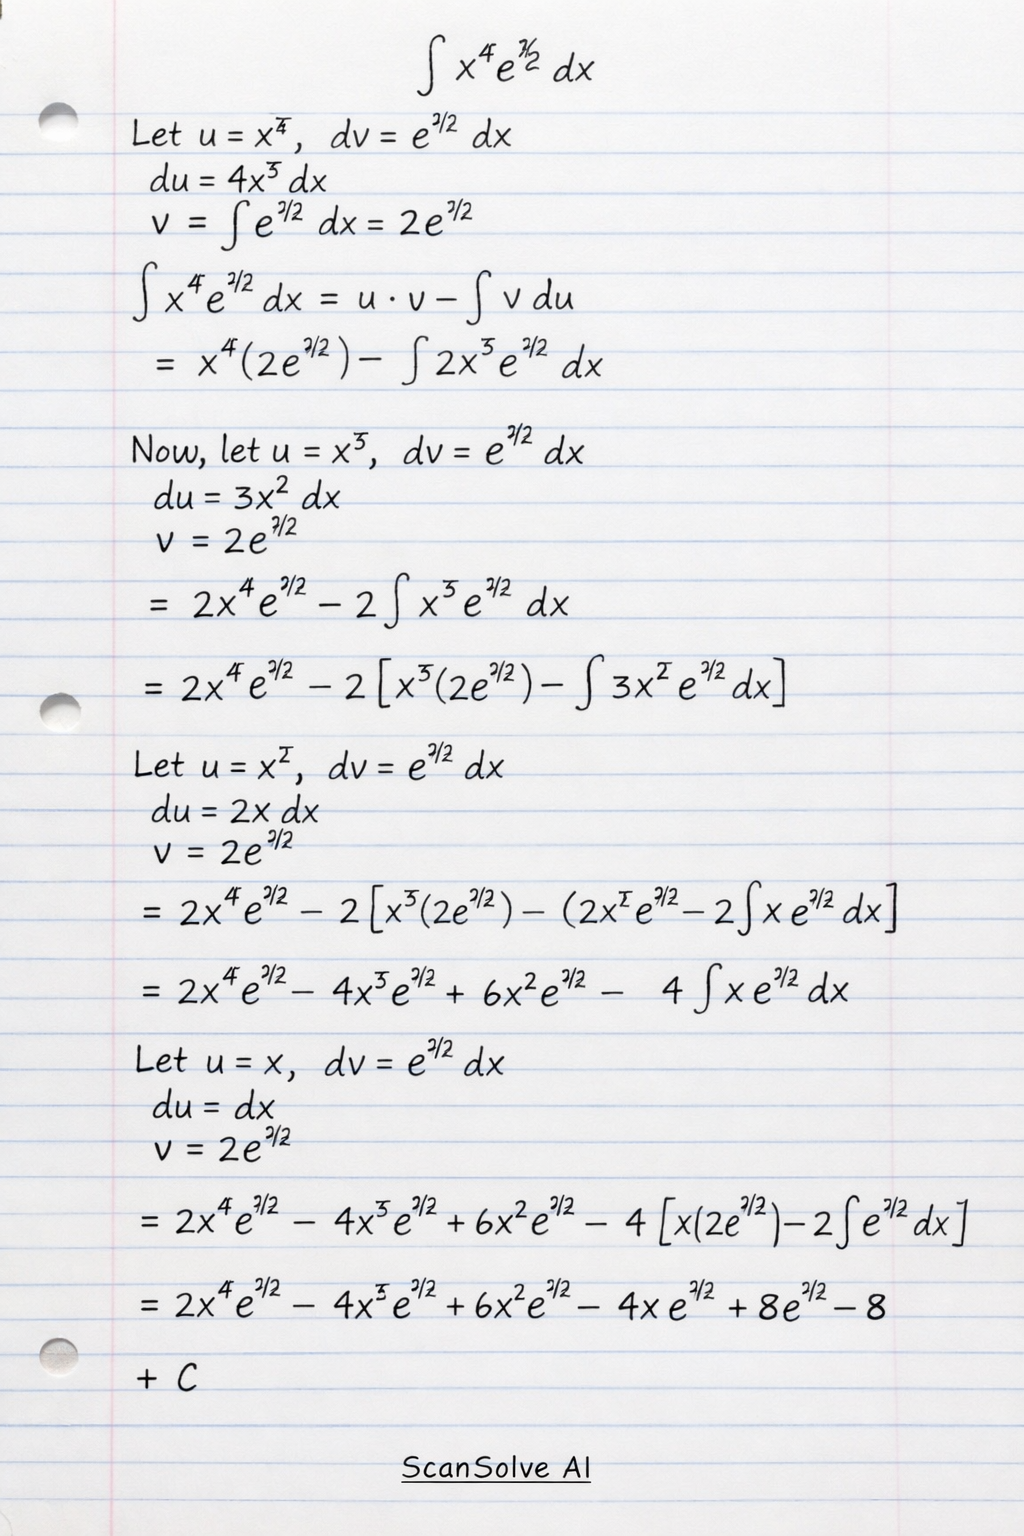 ∫ x⁴e^{x/2} dx
Let u = x⁴, dv = e^{x/2} dx
du = 4x³ dx
v = ∫ e^{x/2} dx = 2e^{x/2}
∫ x⁴e^{x/2} dx = u · v − ∫ v du
= x⁴(2e^{x/2}) − ∫ 2x³e^{x/2} dx
Now, let u = x³, dv = e^{x/2} dx
du = 3x² dx
v = 2e^{x/2}
= 2x⁴e^{x/2} − 2 ∫ x³e^{x/2} dx
= 2x⁴e^{x/2} − 2 [x³(2e^{x/2}) − ∫ 3x² e^{x/2} dx]
Let u = x², dv = e^{x/2} dx
du = 2x dx
v = 2e^{x/2}
= 2x⁴e^{x/2} − 2 [x³(2e^{x/2}) − (2x²e^{x/2} − 2∫ x e^{x/2} dx]
= 2x⁴e^{x/2} − 4x³e^{x/2} + 6x²e^{x/2} − 4 ∫ x e^{x/2} dx
Let u = x, dv = e^{x/2} dx
du = dx
v = 2e^{x/2}
= 2x⁴e^{x/2} − 4x³e^{x/2} + 6x²e^{x/2} − 4 [x(2e^{x/2}) − 2∫ e^{x/2} dx]
= 2x⁴e^{x/2} − 4x³e^{x/2} + 6x²e^{x/2} − 4x e^{x/2} + 8e^{x/2} − 8
+ C
ScanSolve AI